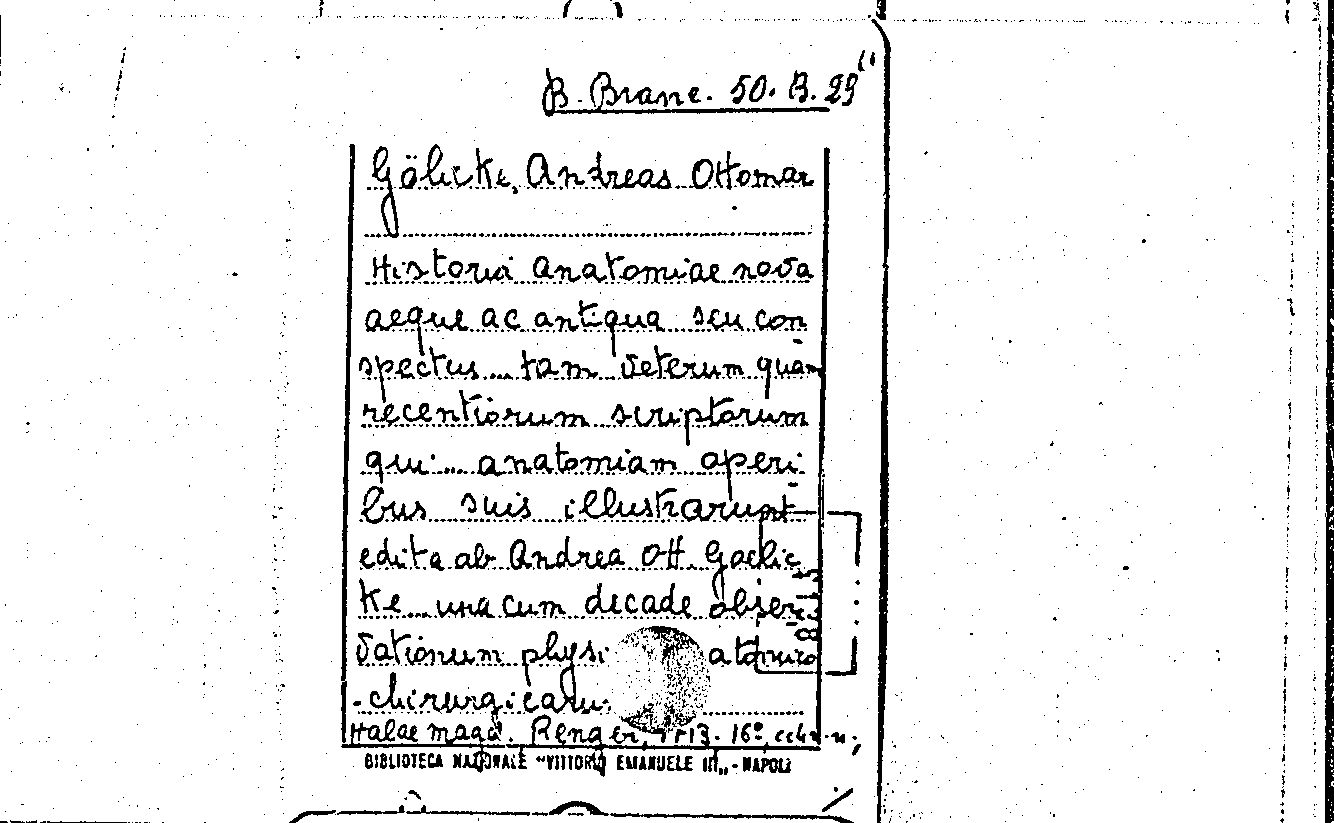 B. Branc. 50. B. 29
Gölicke, Andreas Ottomar
Historia anatomiae nova
aeque ac antiqua seu con
spectus... tam veterum quam
recentiorum scriptorum
qui... anatomiam operi
bus suis illustrarunt
edita ab Andrea Ott. Goelic
ke... una cum decade obser
vationum physi atomico
-chirurgicaru
Halae magd. Renger, 1713. 16º,
BIBLIOTECA NAZIONALE "VITTORIO EMANUELE III„ - NAPOLI